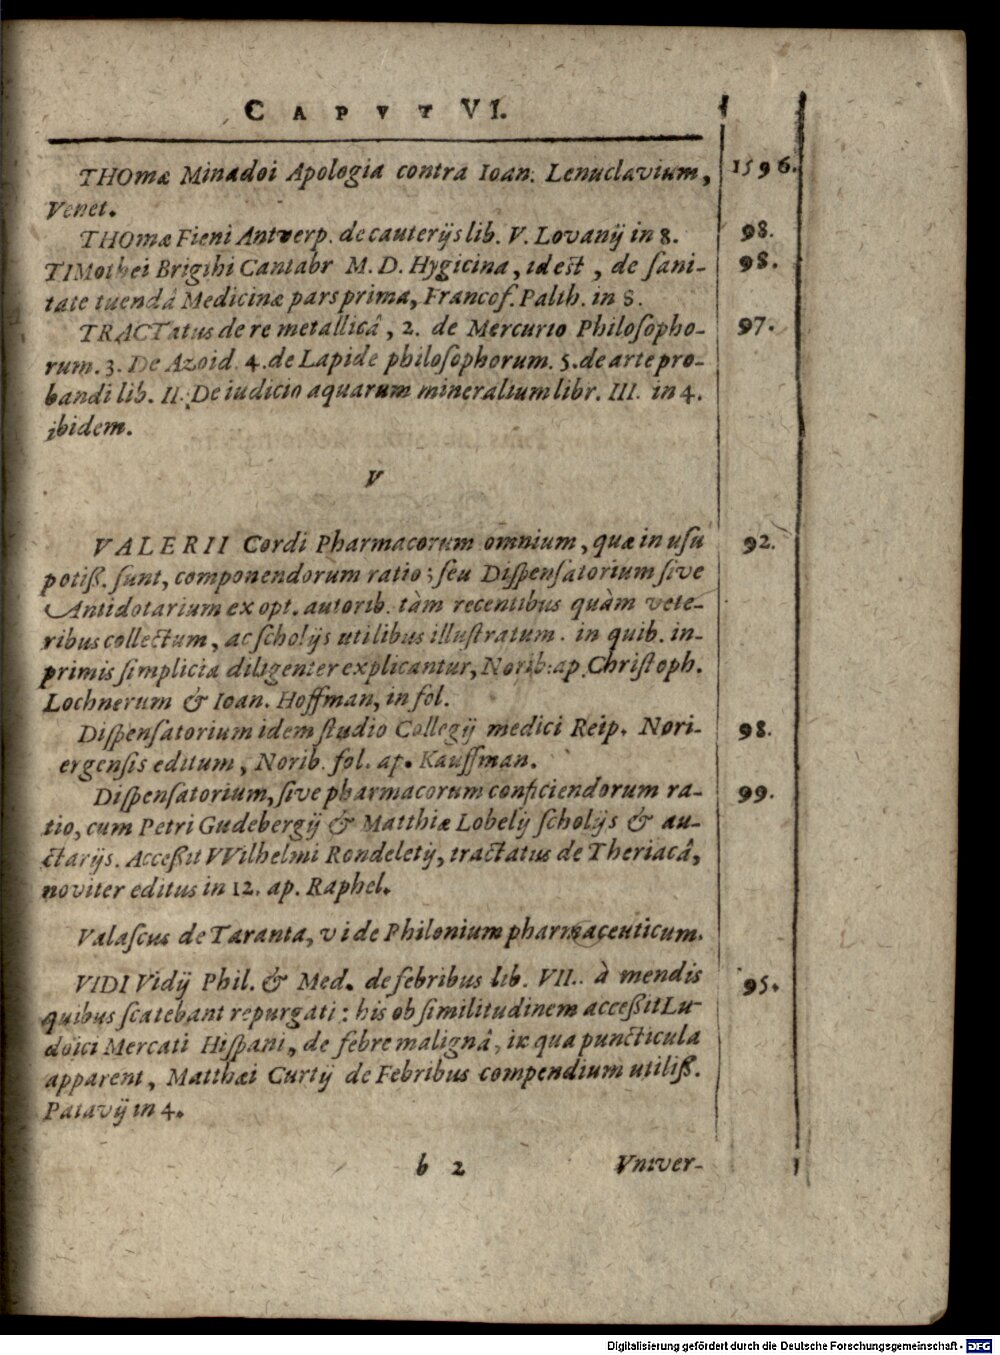 CAPVT VI.
THOmæ Minadoi Apologia contra Ioan. Lenuclavium, 1596.
Venet.
THOmæ Fieni Antverp. de cauterijs lib. V. Lovanij in 8. 98.
TIMothei Brigthi Cantabr M. D. Hygieina, id est, de sani- 98.
tate tuendâ Medicinæ pars prima, Francof. Palth. in 8.
TRACTatus de re metallicâ, 2. de Mercurio Philosopho- 97.
rum. 3. De Azoïd. 4. de Lapide philosophorum. 5. de arte pro-
bandi lib. II. De iudicio aquarum mineralium libr. III. in 4.
ibidem.
V
VALERII Cordi Pharmacorum omnium, quæ in usu 92.
potiß. sunt, componendorum ratio; seu Dispensatorium sive
Antidotarium ex opt. autorib. tàm recentibus quàm vete-
ribus collectum, ac scholijs utilibus illustratum. in quib. in-
primis simplicia diligenter explicantur, Norib: ap. Christoph.
Lochnerum & Ioan. Hoffman, in fol.
Dispensatorium idem studio Collegij medici Reip. Nori- 98.
ergensis editum, Norib. fol. ap. Kauffman.
Dispensatorium, sive pharmacorum conficiendorum ra- 99.
tio, cum Petri Gudebergij & Matthiæ Lobelij scholijs & au-
ctarijs. Acceßit VVilhelmi Rondeletij, tractatus de Theriacâ,
noviter editus in 12. ap. Raphel.
Valascus de Taranta, vide Philonium pharmaceuticum.
VIDI Vidij Phil. & Med. de febribus lib. VII.. à mendis 95.
quibus scatebant repurgati: his ob similitudinem acceßit Lu-
doici Mercati Hispani, de febre malignâ, in qua puncticula
apparent, Matthæi Curtij de Febribus compendium utiliß.
Patavij in 4.
b 2 Vniver-
Digitalisierung gefördert durch die Deutsche Forschungsgemeinschaft - DFG